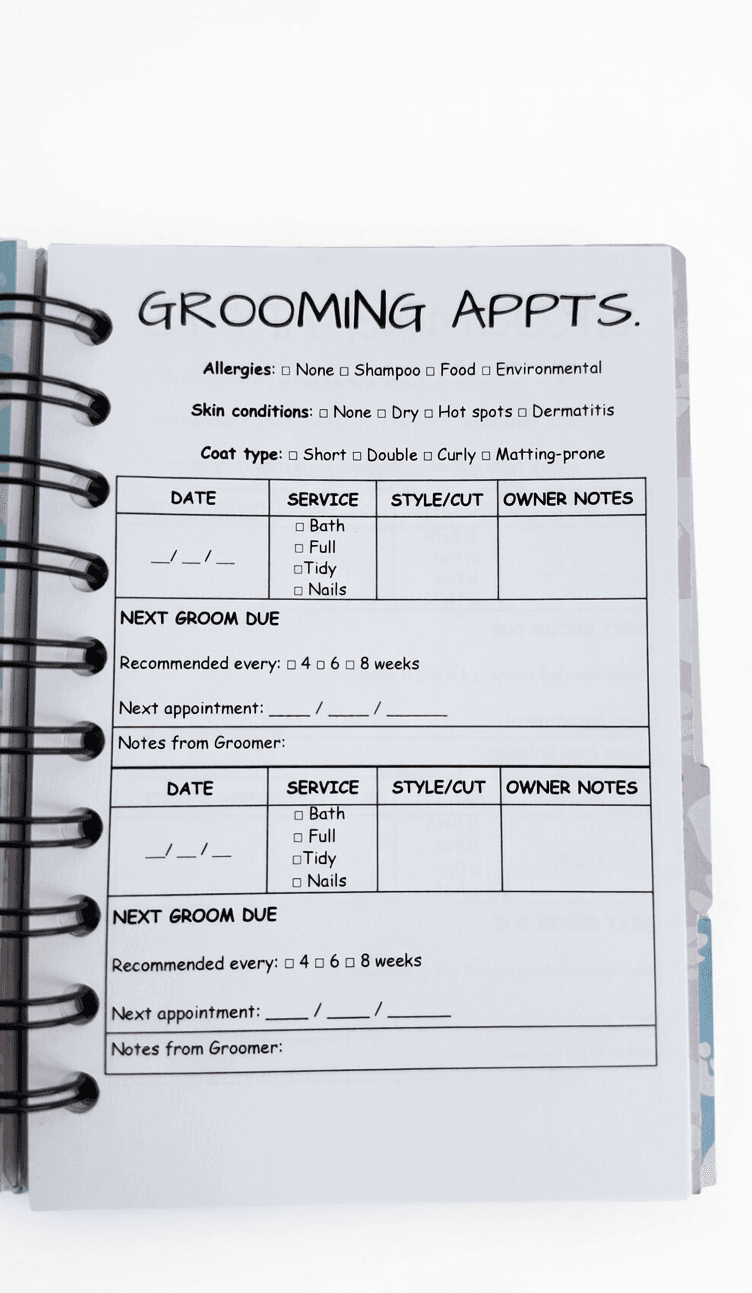 GROOMING APPTS.
Allergies: □ None □ Shampoo □ Food □ Environmental
Skin conditions: □ None □ Dry □ Hot spots □ Dermatitis
Coat type: □ Short □ Double □ Curly □ Matting-prone
DATE SERVICE STYLE/CUT OWNER NOTES
□ Bath
□ Full
__/__/__
□Tidy
□ Nails
NEXT GROOM DUE
Recommended every: □ 4 □ 6 □ 8 weeks
Next appointment: ____ / ____ / ______
Notes from Groomer:
DATE SERVICE STYLE/CUT OWNER NOTES
□ Bath
□ Full
__/__/__
□Tidy
□ Nails
NEXT GROOM DUE
Recommended every: □ 4 □ 6 □ 8 weeks
Next appointment: ____ / ____ / ______
Notes from Groomer: